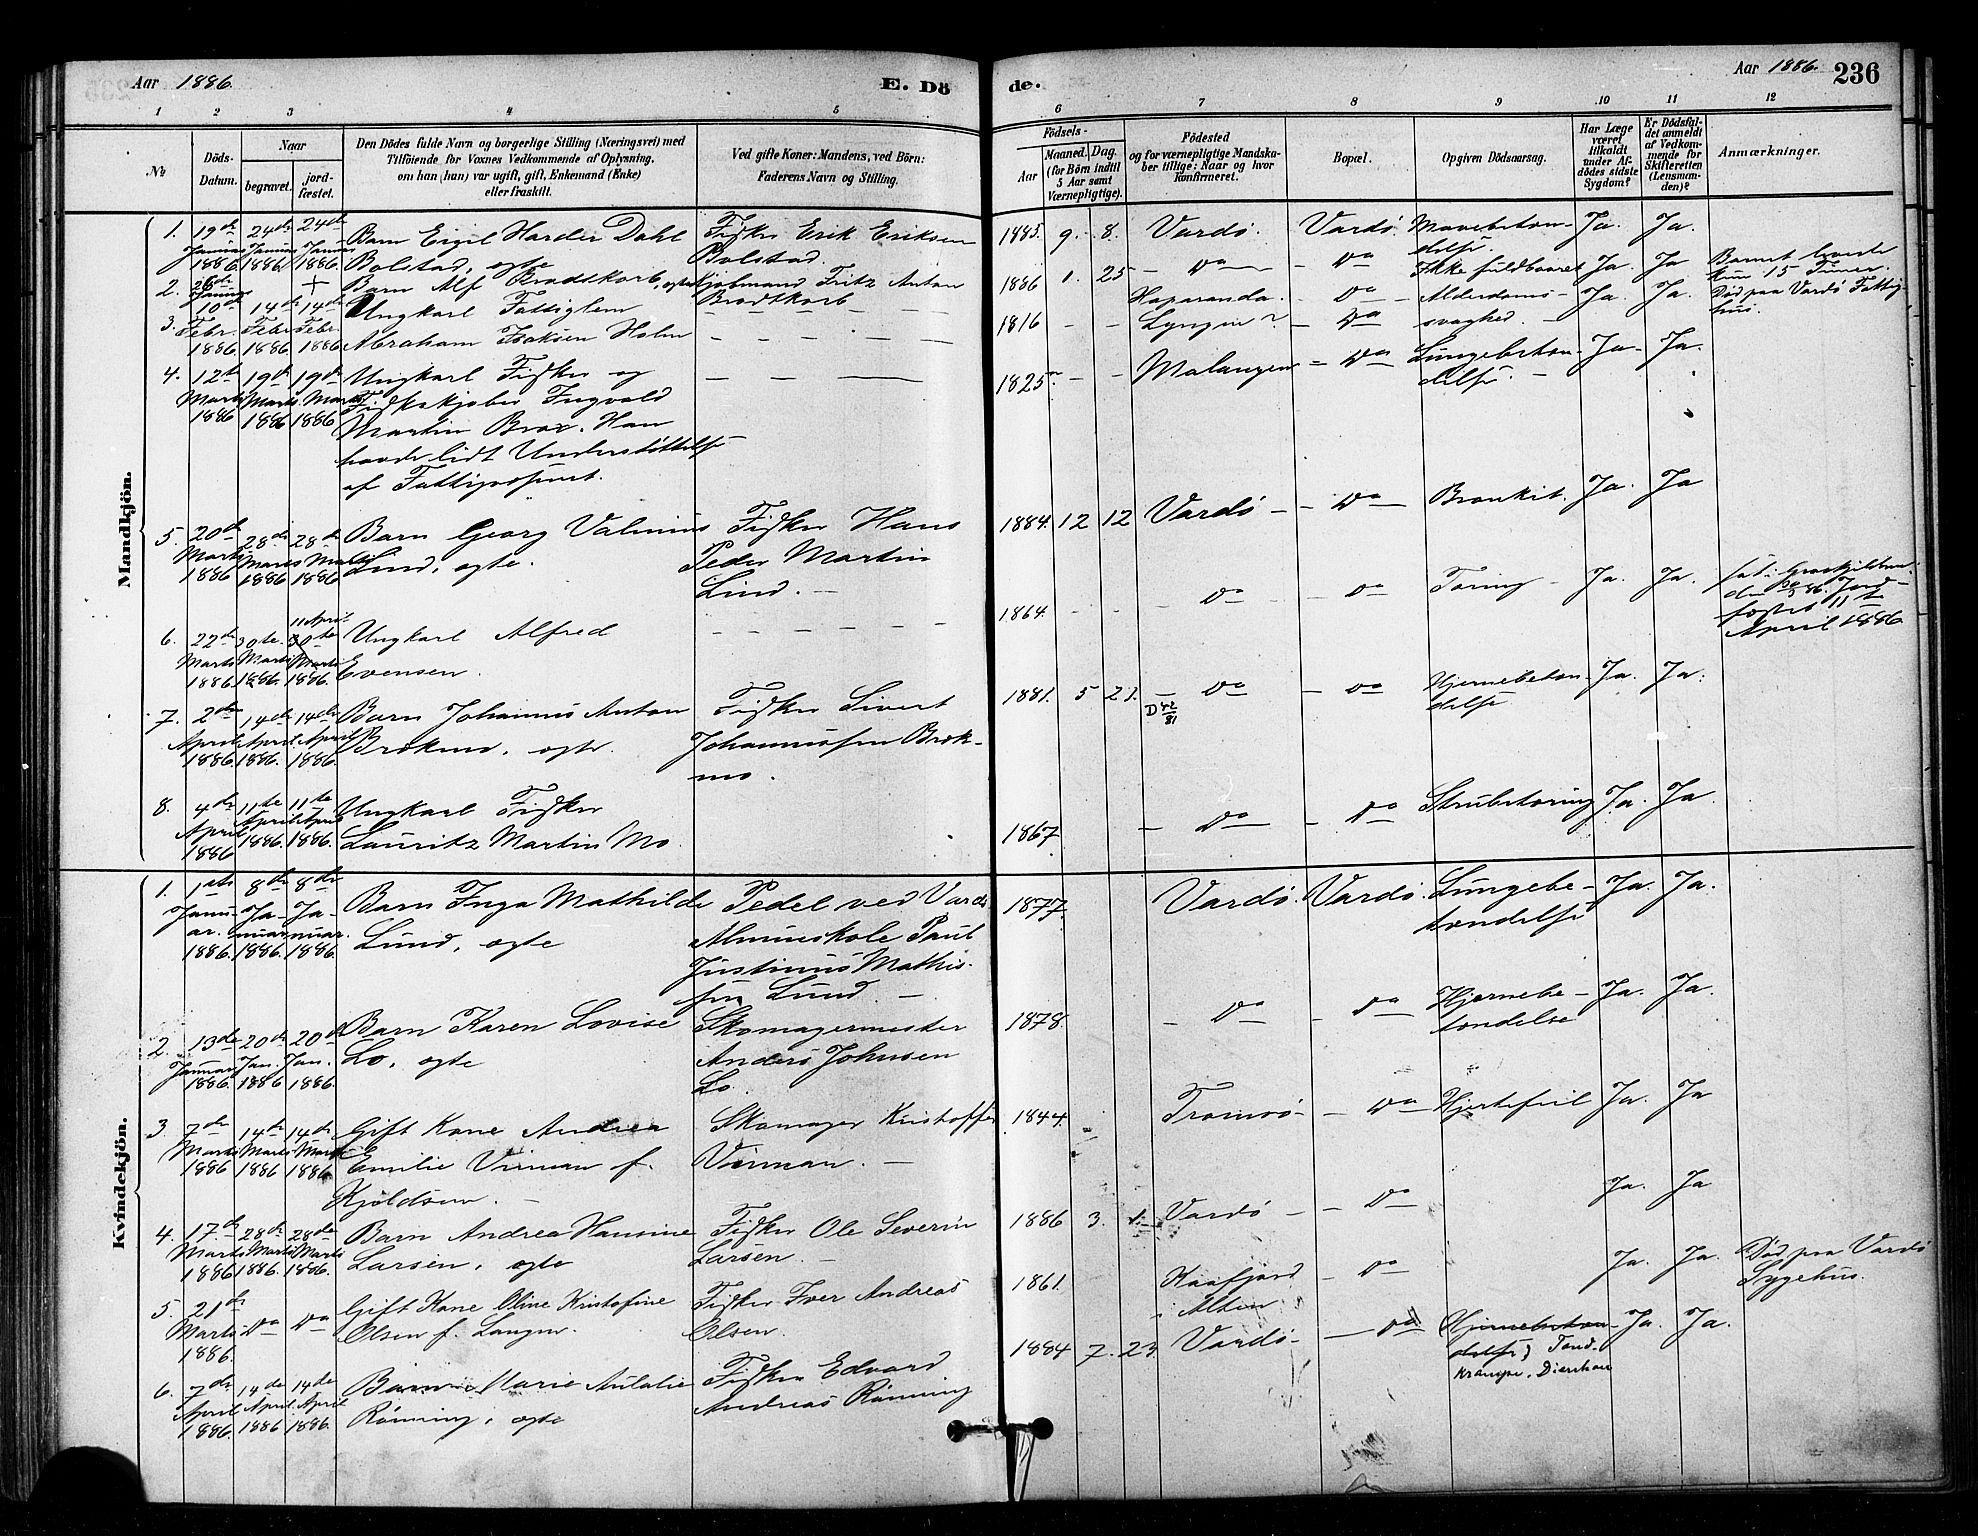 Aar 1886.
E. Dö
de.
Aar 1886.
236
1 2 3 4 5 6 7 8 9 10 11 12
No
Döds-
Datum.
Naar
begravet.
jord-
fæstet.
Den Dödes fulde Navn og borgerlige Stilling (Næringsvei) med
Tilföiende for Voxnes Vedkommende af Oplysning.
om han (hun) var ugift, gift, Enkemand (Enke)
eller fraskilt.
Ved gifte Koner: Mandens, ved Börn:
Faderens Navn og Stilling.
Födsels-
Aar
Maaned. Dag.
(for Börn indtil
5 Aar samt
Værnepligtige).
Födested
og for værnepligtige Mandska-
ber tillige: Naar og hvor
Konfirmeret.
Bopæl.
Opgiven Dödsaarsag.
Har Læge
været
tilkaldt
under Af-
dödes sidste
Sygdom?
Er Dödsfal-
det anmeldt
af Vedkom-
mende for
Skifteretten
(Lensman-
den)?
Anmærkninger.
Mandkjön.
1. 19de Januar 1886. 24de Januar 1886. 24de Januar 1886.
Barn Eigil Harder Dahl
Bolstad, ægte
Fisker Erik Eriksen
Bolstad.
1885. 9. 8. Vardö. Vardö. Mavebeten-
delse. Ja. Ja.
2. 26de Januar +
Barn Alf Brodtkorb, ægte
Kjøbmand Fritz Anton
Brodtkorb
1886 1. 25 Do Do Ikke fuldbaaret Ja. Ja
Barnet levede
kun 15 Timer.
3. 10de Febr. 1886. 14de Febr. 1886 14de Febr. 1886.
Ungkarl Fattiglem
Abraham Isaksen Holm
1816 - - Haparanda.
Lyngen? Do Alderdoms-
svaghed. Ja. Ja.
Død paa Vardö Fattig-
hus.
4. 12te Marts 1886 19de Marts 1886 19de Marts 1886
Ungkarl Fisker og
Ingvald
Martin Brox. Han
havde lidt Understöttelse
af Fattigvæsenet.
1825. - - Malangen Do Lungebeten-
delse. Ja. Ja.
5. 20de Marts 1886 28de Marts 1886 28de Marts 1886
Barn Georg Valinius
Lind, ægte.
Fisker Hans
Peder Martin
Lind.
1884. 12 12 Vardö Do Bronkit. Ja. Ja
6. 22de Marts 1886. 30te Marts 1886. 11 April 30te Marts 1886.
Ungkarl Alfred
Evensen.
1864. - - Do Do Tæring Ja. Ja.
11te
April 1886
7. 2den April 1886 14de April 1886. 14de April 1886
Barn Johannes Anton
Brekmo, ægte.
Fisker Sivert
Johannessen Brek-
mo.
1881. 5 21. Do Do Hjernebeten-
delse Ja. Ja.
D 42/81
8. 4de April 1886 11te April 1886. 11te April 1886.
Ungkarl Fisker
Lauritz Martin Mo.
1867 Do Do Strubetæring Ja. Ja.
Kvindekjön.
1. 1ste Janu-
ar. 1886. 8de Ja-
nuar 1886. 8de Ja-
nuar. 1886.
Barn Inga Mathilde
Lund, ægte
Pedel ved Vardö
Almueskole Paul
Justinus Mathis-
sen Lund.
1877. Vardö. Vardö. Lungebe-
tændelse Ja. Ja.
2. 13de Januar 1886. 20de Jan. 1886 20de Jan. 1886.
Barn Karen Lovise
Lo, ægte
Skomagermester
Anders Johnsen
Lo.
1878. Do Do Hjernebe-
tændelse Ja. Ja.
3. 7de Marts 1886 14de Marts 1886 14de Marts 1886
Gift Kone Andrea
Emilie Virman f.
Kjeldsen.
Skomager Kristoffer
Virman.
1844. Tromsö Do Hjertefeil Ja. Ja
4. 17de Marts 1886 28de Marts 1886. 28de Marts 1886.
Barn Andrea Hansine
Larsen, ægte
Fisker Ole Severin
Larsen.
1886 3. 1. Vardö Do Ja. Ja
5. 21de Marts 1886. Do Do
Gift Kone Oline Kristofine
Olsen f. Langen.
Fisker Iver Andreas
Olsen.
1861. Kaafjord
i Alten Do Ja. Ja.
Død paa Vardö
Sygehus.
6. 7de April 1886. 14de April. 1886 14de April 1886.
Barn Marie Aulalie
Rönning, ægte
Fisker Edvard
Andreas Rönning
1884 7. 23. Vardö Do Hjernebeten-
delse, Tand-
krampe, Ja. Ja.